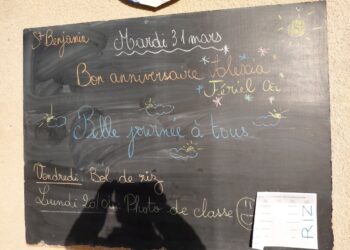 St Benjamin
Mardi 31 mars
Bon anniversaire
Fériel
Belle journée à tous
Vendredi : Bol de riz
Lundi Photo de classe
RIZ